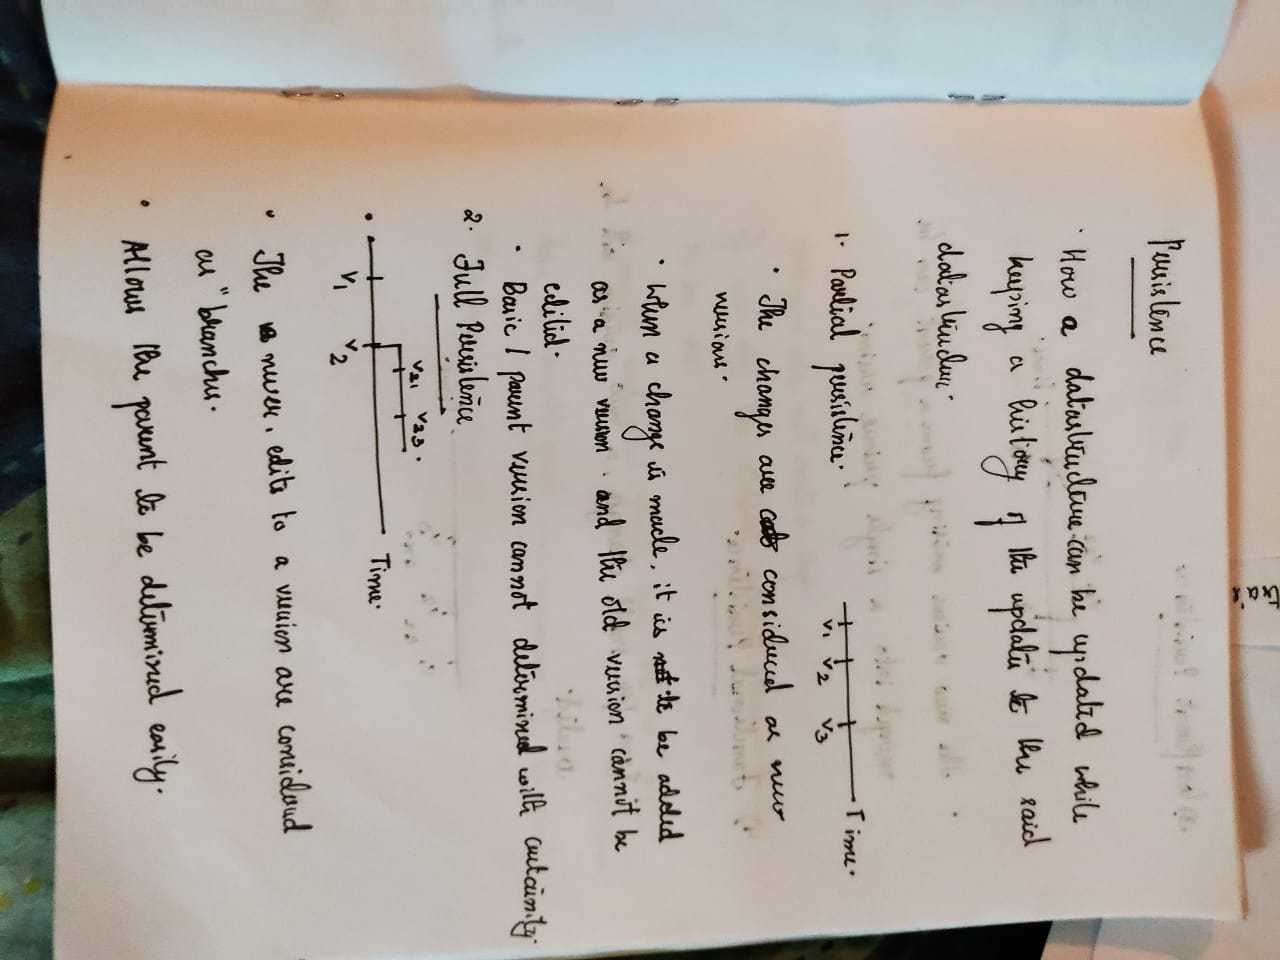 Persistence
· How a datastructure can be updated while
keeping a history of the updates to the said
datastructure.
1. Partial persistence.
Time.
V1 V2 V3
· The changes are considered as new
versions.
· When a change is made, it is to be added
as a new version and the old version cannot be
edited.
· Basic / parent version cannot determined with certainity.
2. Full Persistence
V21 V23.
Time.
V1 V2
· The newer edits to a version are considered
as "branches.
· Allows the parent to be determined easily.